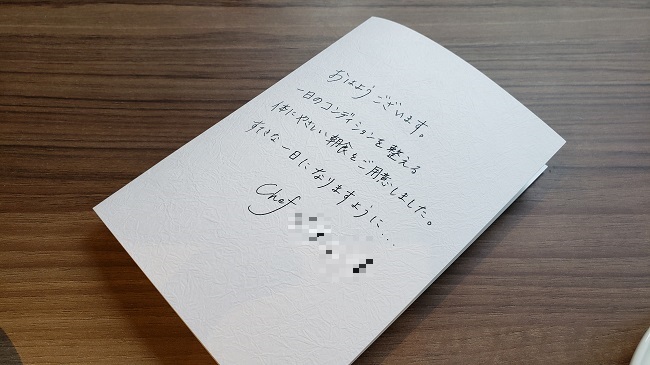 おはようございます。
一日のコンディションを整える
体にやさしい朝食をご用意しました。
すてきな一日になりますように…
Chef